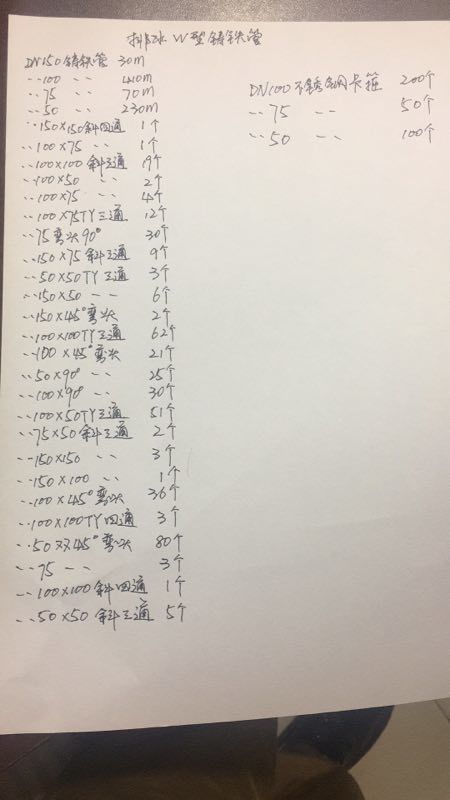 排水W型铸铁管
DN150铸铁管 30m
〃100 〃 410m
〃75 〃 70m
〃50 〃 230m
〃150×150斜四通 1个
〃100×75 〃 1个
〃100×100 斜三通 19个
〃100×50 〃 2个
〃100×75 〃 4个
〃100×75TY三通 12个
〃75弯头90° 30个
〃150×75 斜三通 9个
〃50×50TY三通 3个
〃150×50 〃 6个
〃150×45°弯头 2个
〃100×100TY三通 62个
〃100×45°弯头 21个
〃50×90° 〃 25个
〃100×90° 〃 30个
〃100×50TY三通 51个
〃75×50斜三通 2个
〃150×150 〃 3个
〃150×100 〃 1个
〃100×45°弯头 36个
〃100×100TY四通 3个
〃50××45°弯头 80个
〃75 〃 3个
〃100×100斜四通 1个
〃50×50 斜三通 5个
DN100不锈钢卡箍 200个
〃75 〃 50个
〃50 〃 100个